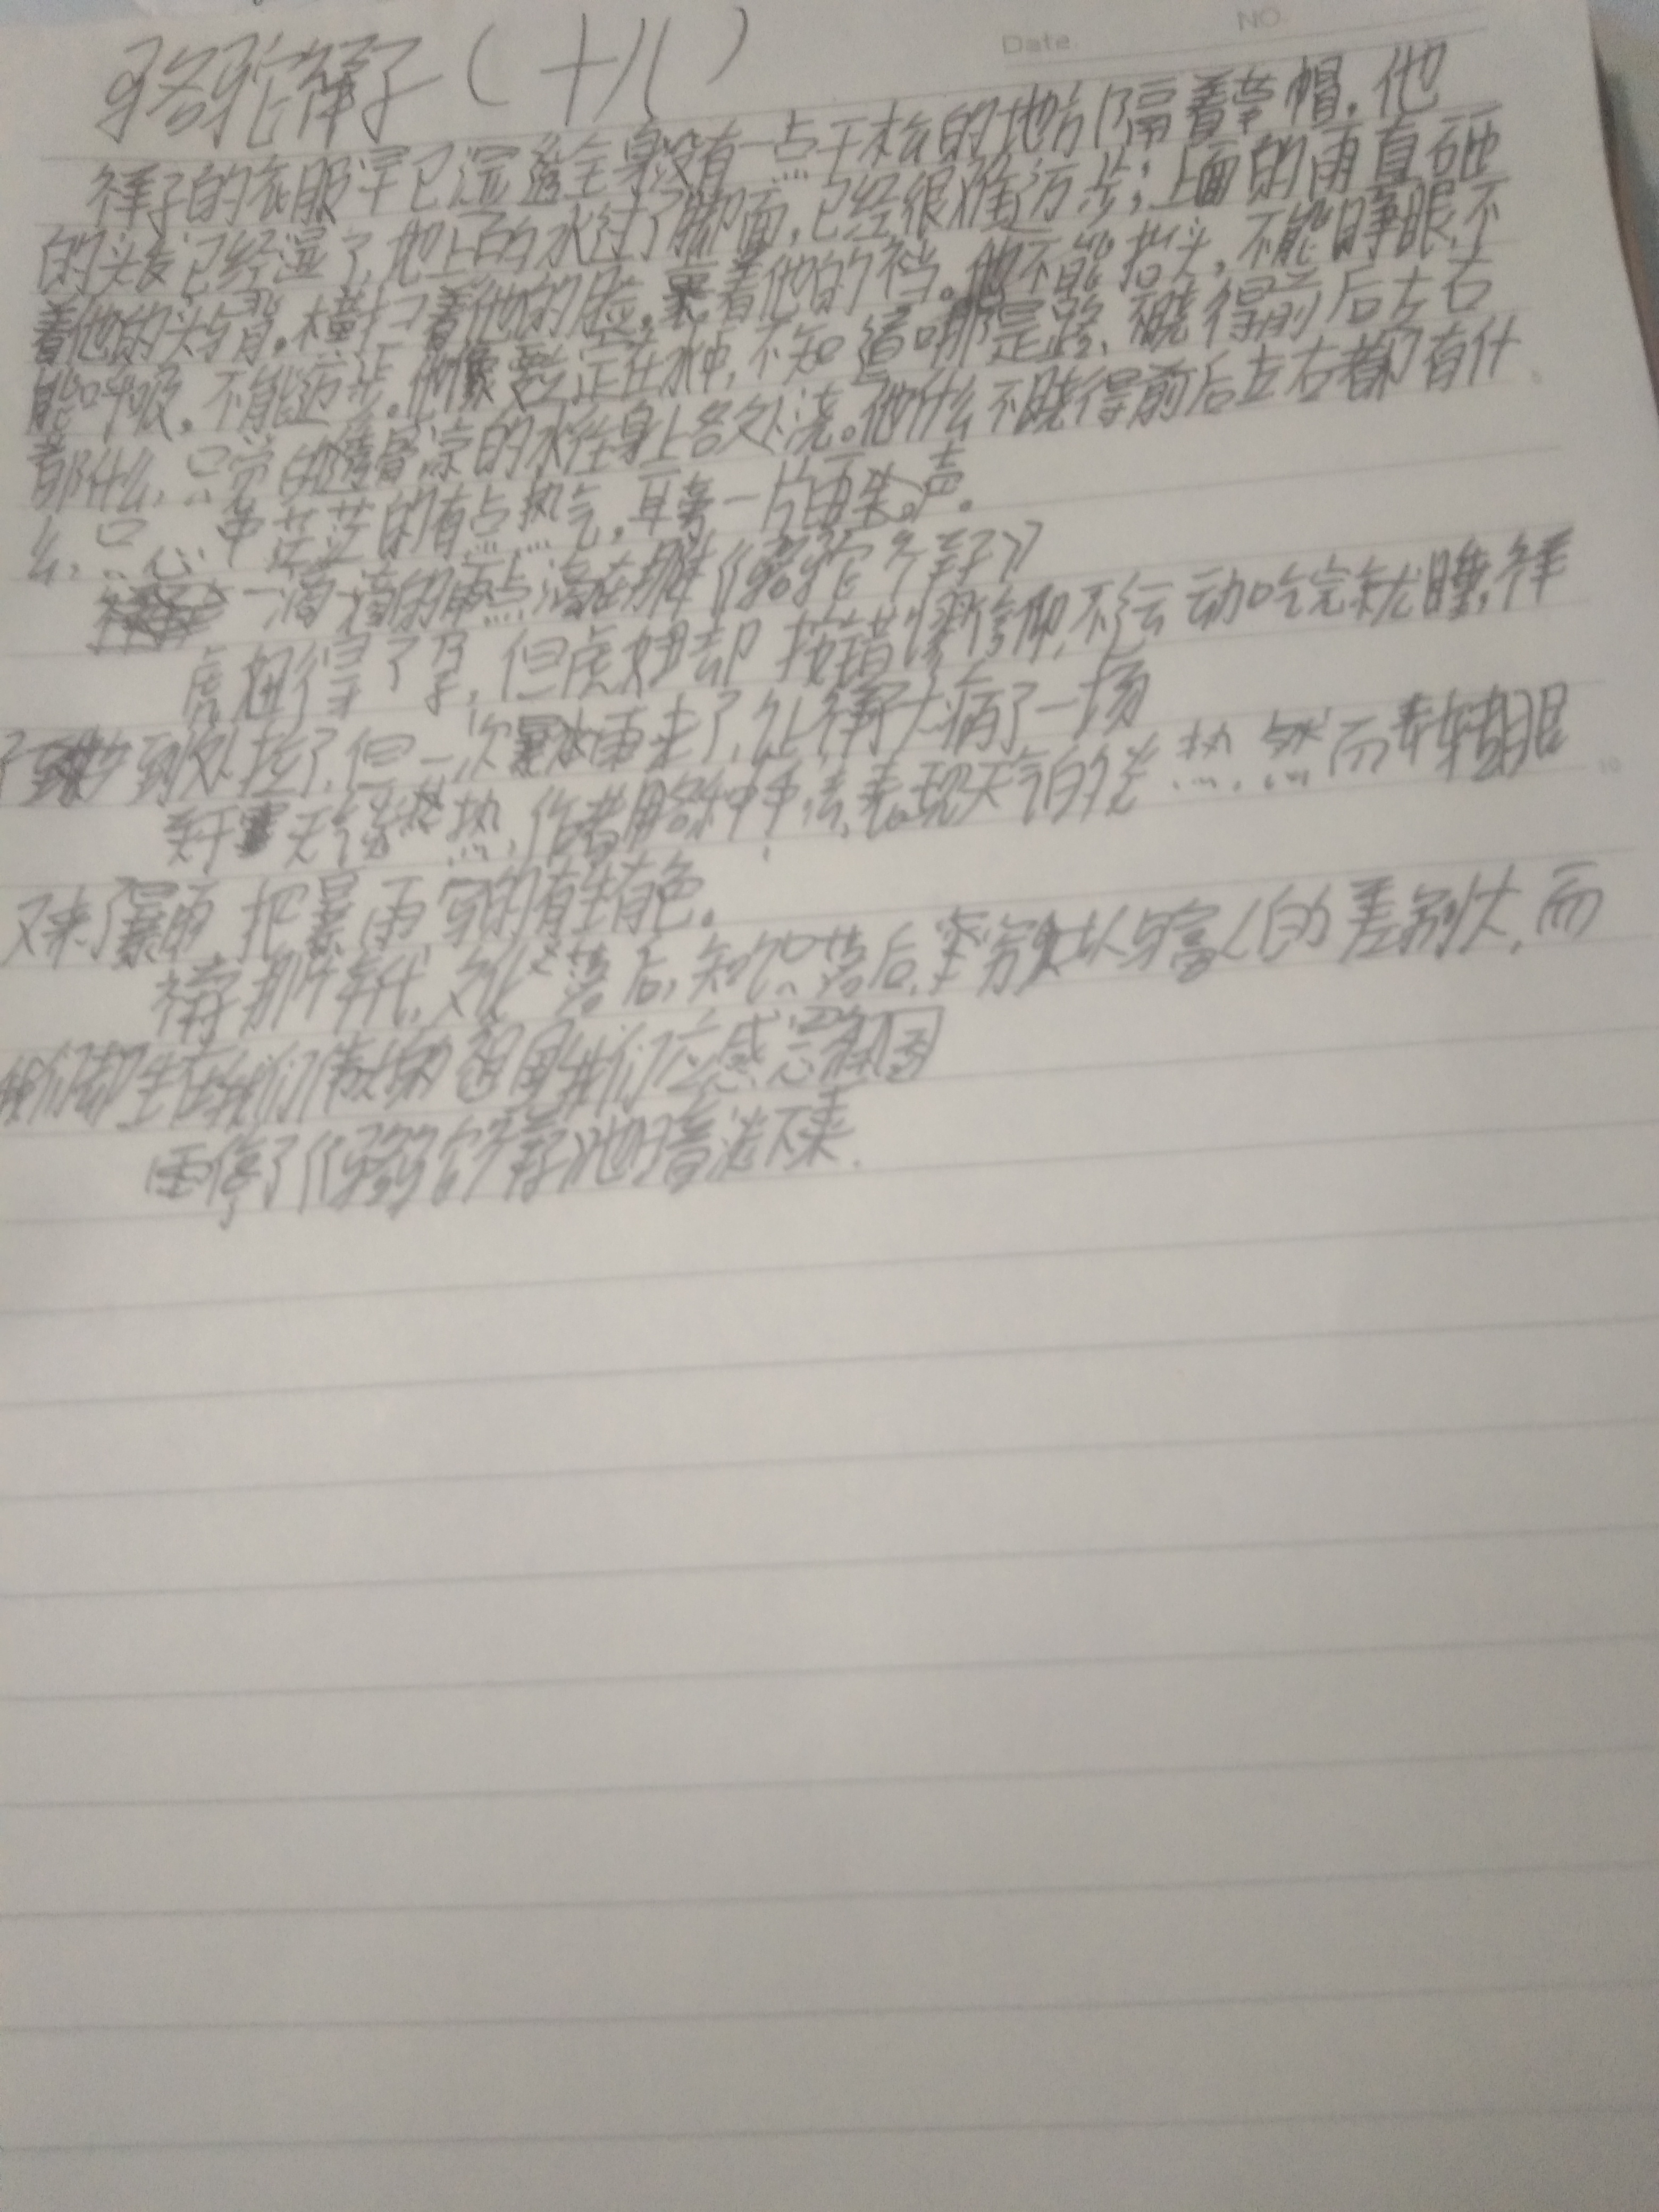 骆驼祥子(十八)
Date. NO.
祥子的衣服早已湿透全身没有一点干松的地方隔着草帽.他
的头发已经湿了,地上的水过了脚面,已经很难迈步;上面的雨直砸
着他的头与背.横扫着他的脸,裹着他的裆。他不能抬头,不能睁眼,不
能呼吸.不能迈步.他像要立定在水中,不知道哪是路、不晓得前后左右
都什么,只觉的透骨凉的水往身上各处浇。他什么不晓得前后左右都有什
么,只心中茫茫的有点热气.耳旁一片雨声。
一滴滴的雨点滴在《骆驼祥子》
虎妞得了孕,但虎妞却不运动吃完就睡,祥
子到处拉了.但一次暴雨来了,让祥子大病了一场
关于天气炎热,作者用各种手法,表现天气的炎热.然而转眼
又来了暴雨 把暴雨写的有生有色。
祥子那个年代,文化落后,知识落后,穷人与富人的差别大,而
我们却生在我们伟大的祖国我们应感恩祖国
雨停了《骆驼祥子》